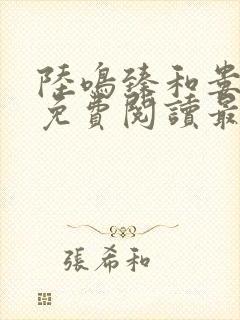 陸鳴臻和婁
免費閱讀最
張希和